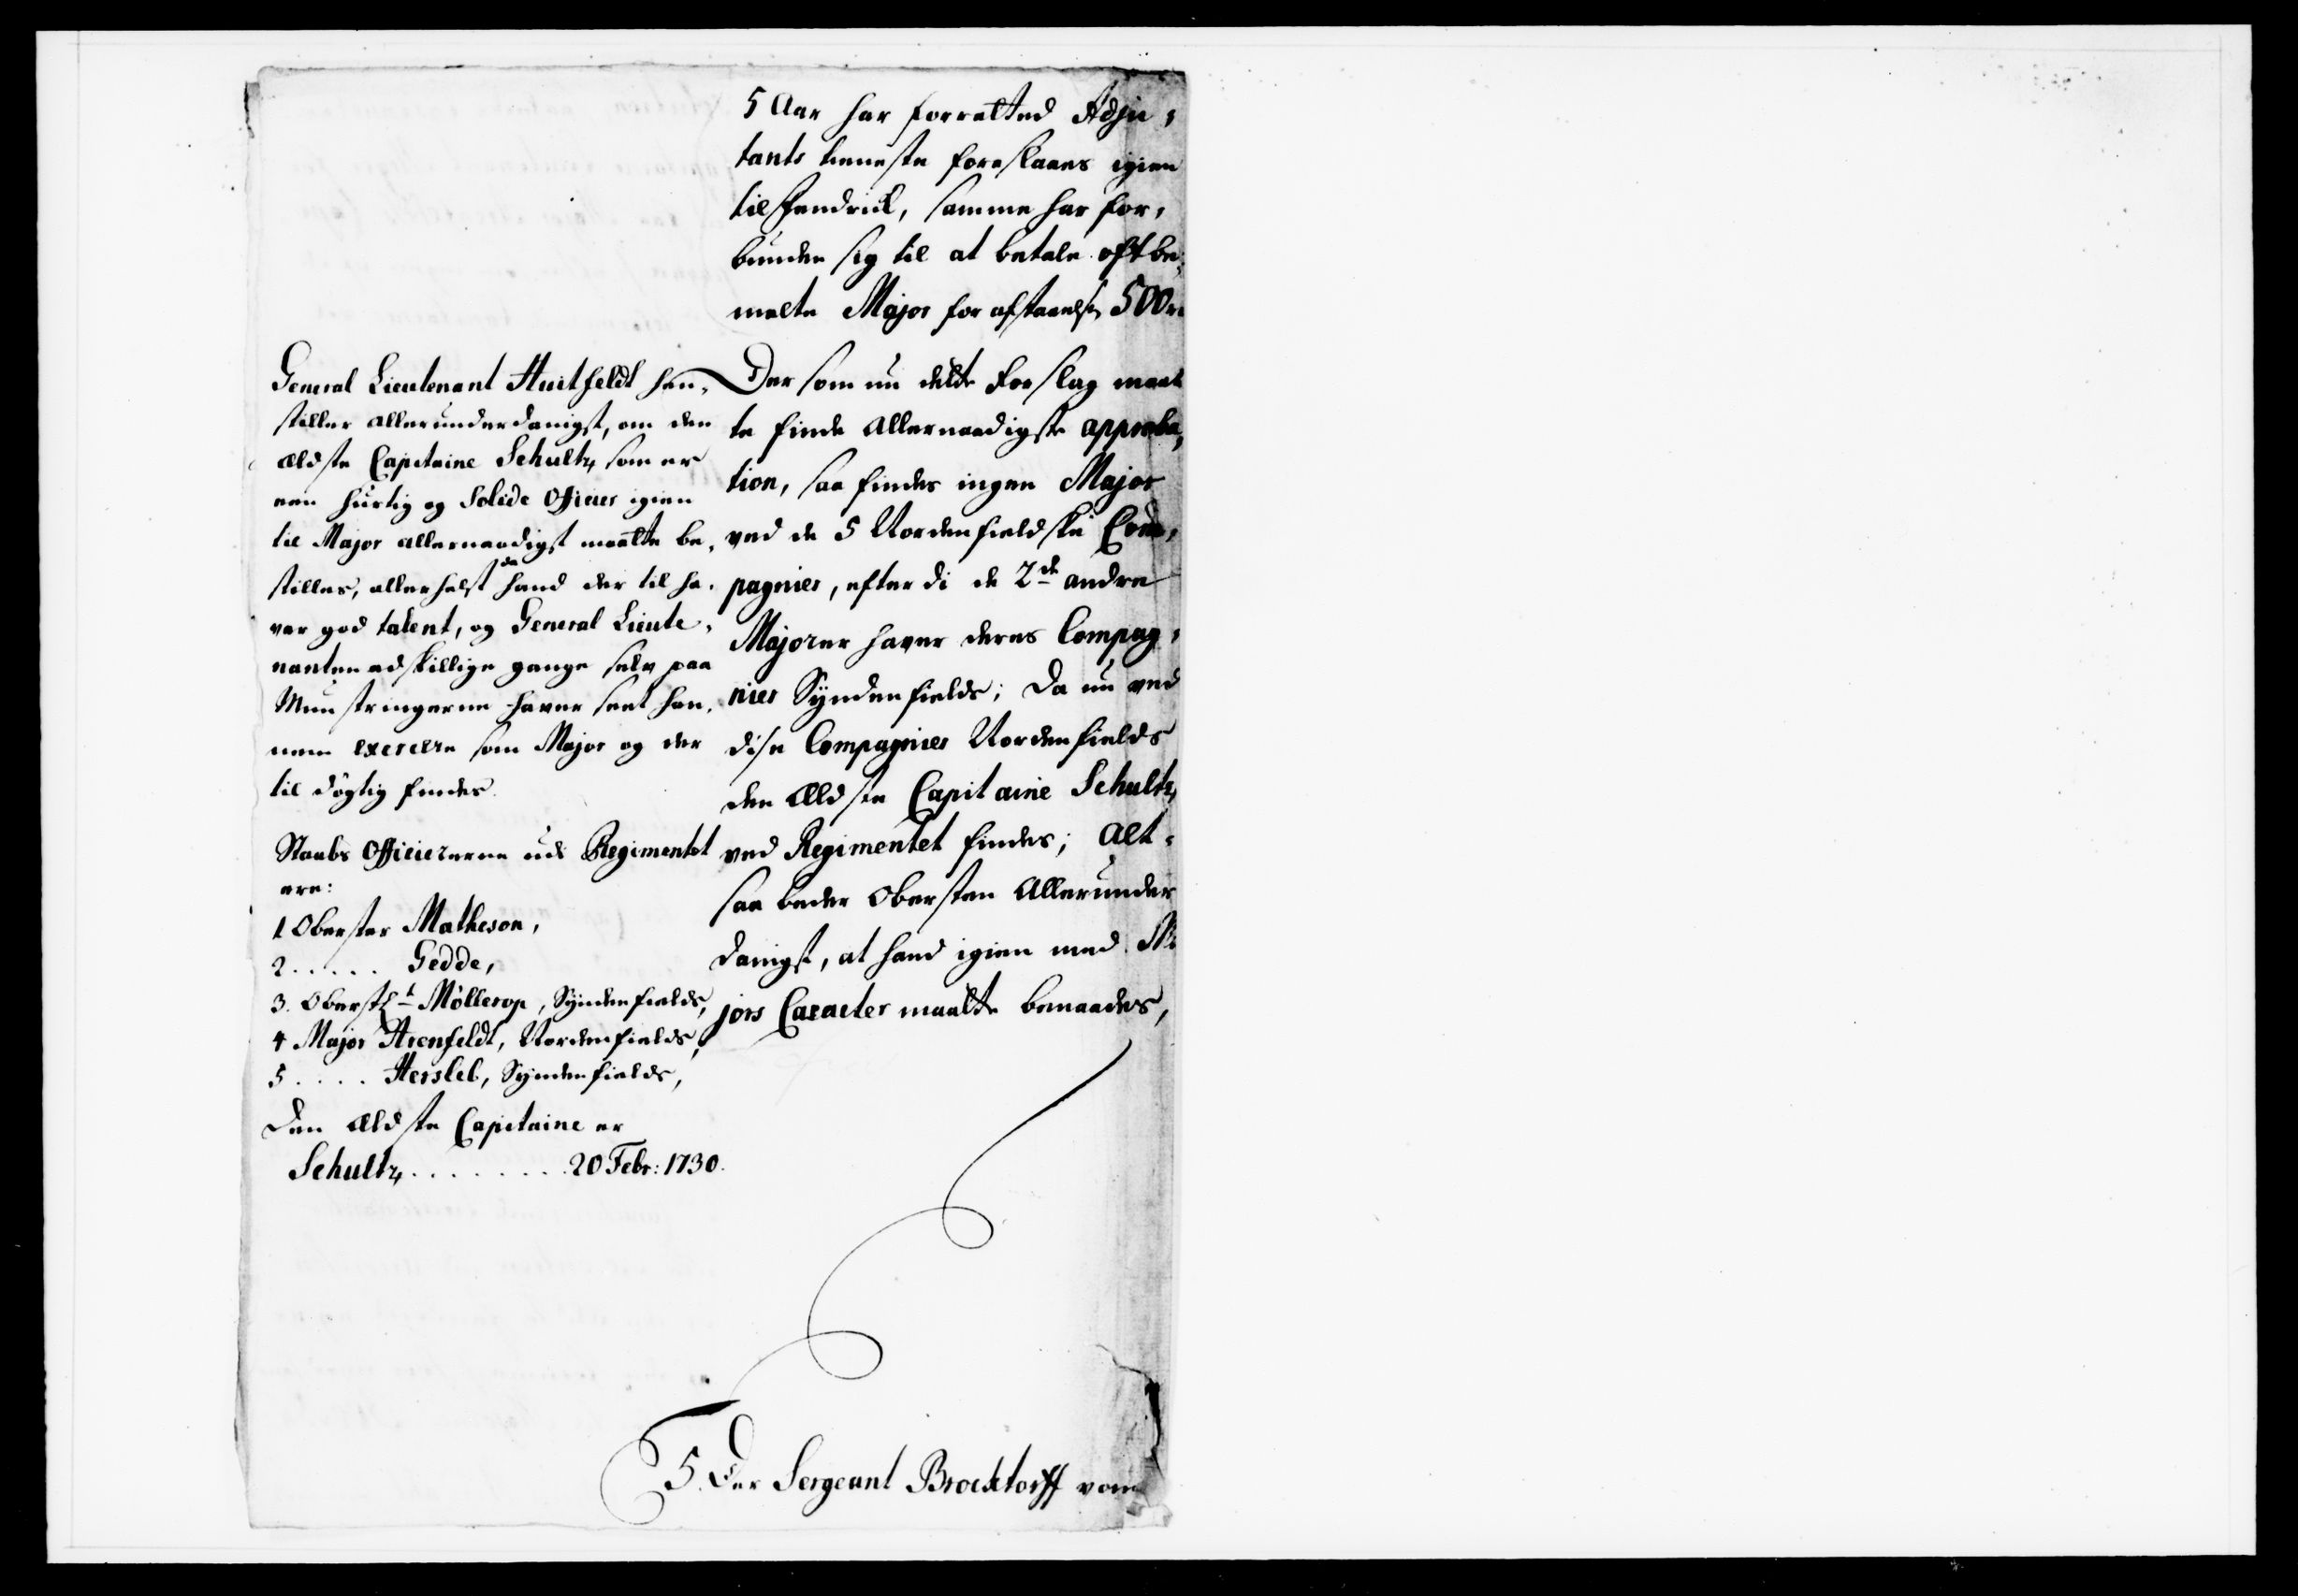 5 Aar har forrætted Adju,
tants tieneste foreslaaes igien
til Fendrick, samme har for,
bunden sig til at betale oftbe,
melte Major for afstaaelsen 500 r
Der som nu dette Forslag maat
te finde Allernaadigste approba,
tion, saa findes ingen Major
ved de 5 Nordenfieldske Com,
pagnier, efter di de 2de andre
Majorer haver deres Compag,
nier Syndenfields; da nu ved
dise Compagnier Nordenfields
den Ældste Capitaine Schultz
ved Regimentet findes; alt,
saa beder Obersten Allerunder
danigst, at hand igien med Ma
jors Caracter maatte benaades,
General Lieutenant Huitfeldt hen,
stiller allerunderdanigst, om den
ældste Capitaine Schultz som er
een hurtig og Solide Officier igien
til Major allernaadigst maatte be,
stilles, allerhelst da hand der til ha,
ver god talent, og General Lieute,
nanten adskillige gange selv paa
Munstringerne haver seet han,
nem exercere som Major og der
til dögtig findes.
Staabs Officiererne ved Regimentet
ere:
1 Oberster Matheson,
2 . . . . . Gedde,
3. Oberstlt Möllerop, Syndenfields,
4 Major Arenfeldt, Nordenfields,
5 . . . . Hersleb, Syndenfields,
Den Ældste Capitaine er
Schultz . . . . . . . 20 Febr: 1730.
5. Der Sergeant Brocktorff vom